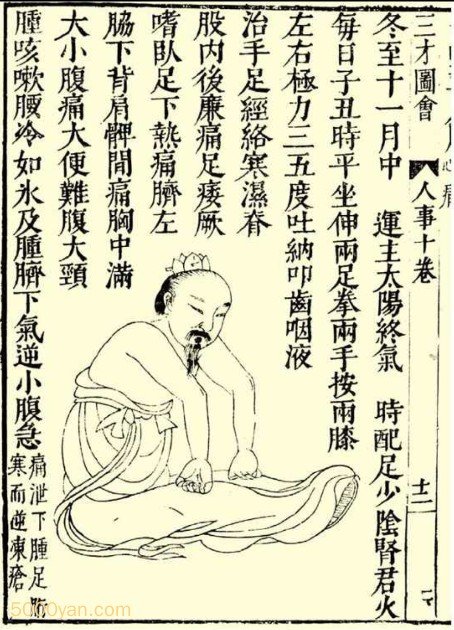 三才圖會
人事十卷
十二
冬至十一月中　運主太陽終氣　時配足少陰腎君火
每日子丑時平坐伸兩足拳兩手按兩膝
左右極力三五度吐納叩齒咽液
治手足經絡寒濕脊
股內後廉痛足痿厥
嗜臥足下熱痛臍左
脇下背肩髀間痛胸中滿
大小腹痛大便難腹大頸
腫咳嗽腰冷如氷及腫臍下氣逆小腹急
痛泄下腫足胻
寒而逆凍瘡
5000yan.com